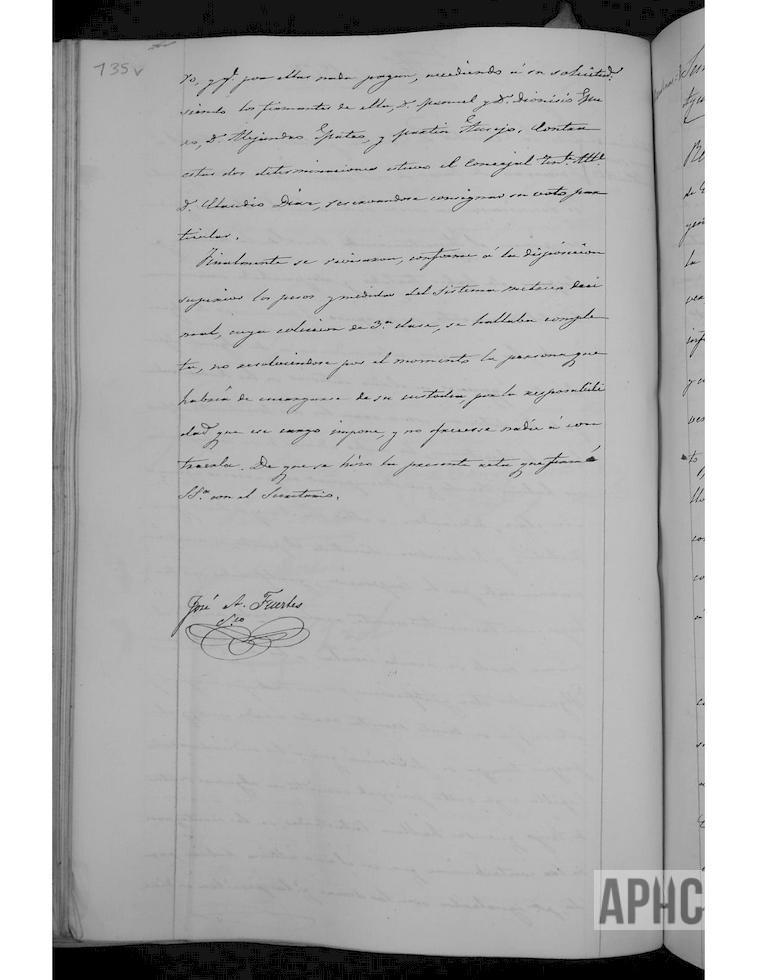 135v
ro, y qe. por ellas nada pagan, accediendo á su solicitud,
siendo los firmantes de ella, D. Manuel y D. Dionisio
D. Alejandro y Martin Contra
estas dos determinaciones estuvo el Concejal Tente. Alcde.
D. Claudio Diaz, reservandose consignar su voto par
ticular.
Finalmente se revisaron, conforme á la disposicion
superior los pesos y medidas del sistema metrico deci
mal, cuya coleccion de 3ª clase, se hallaba comple
ta, no resolviendose por el momento la persona que
habria de encargarse de su custodia, por la responsabili
dad que ese cargo impone, y no
De que se hizo la presente acta que firmó
SSª con el Secretario.
José A. Fuertes
Srio
APHC